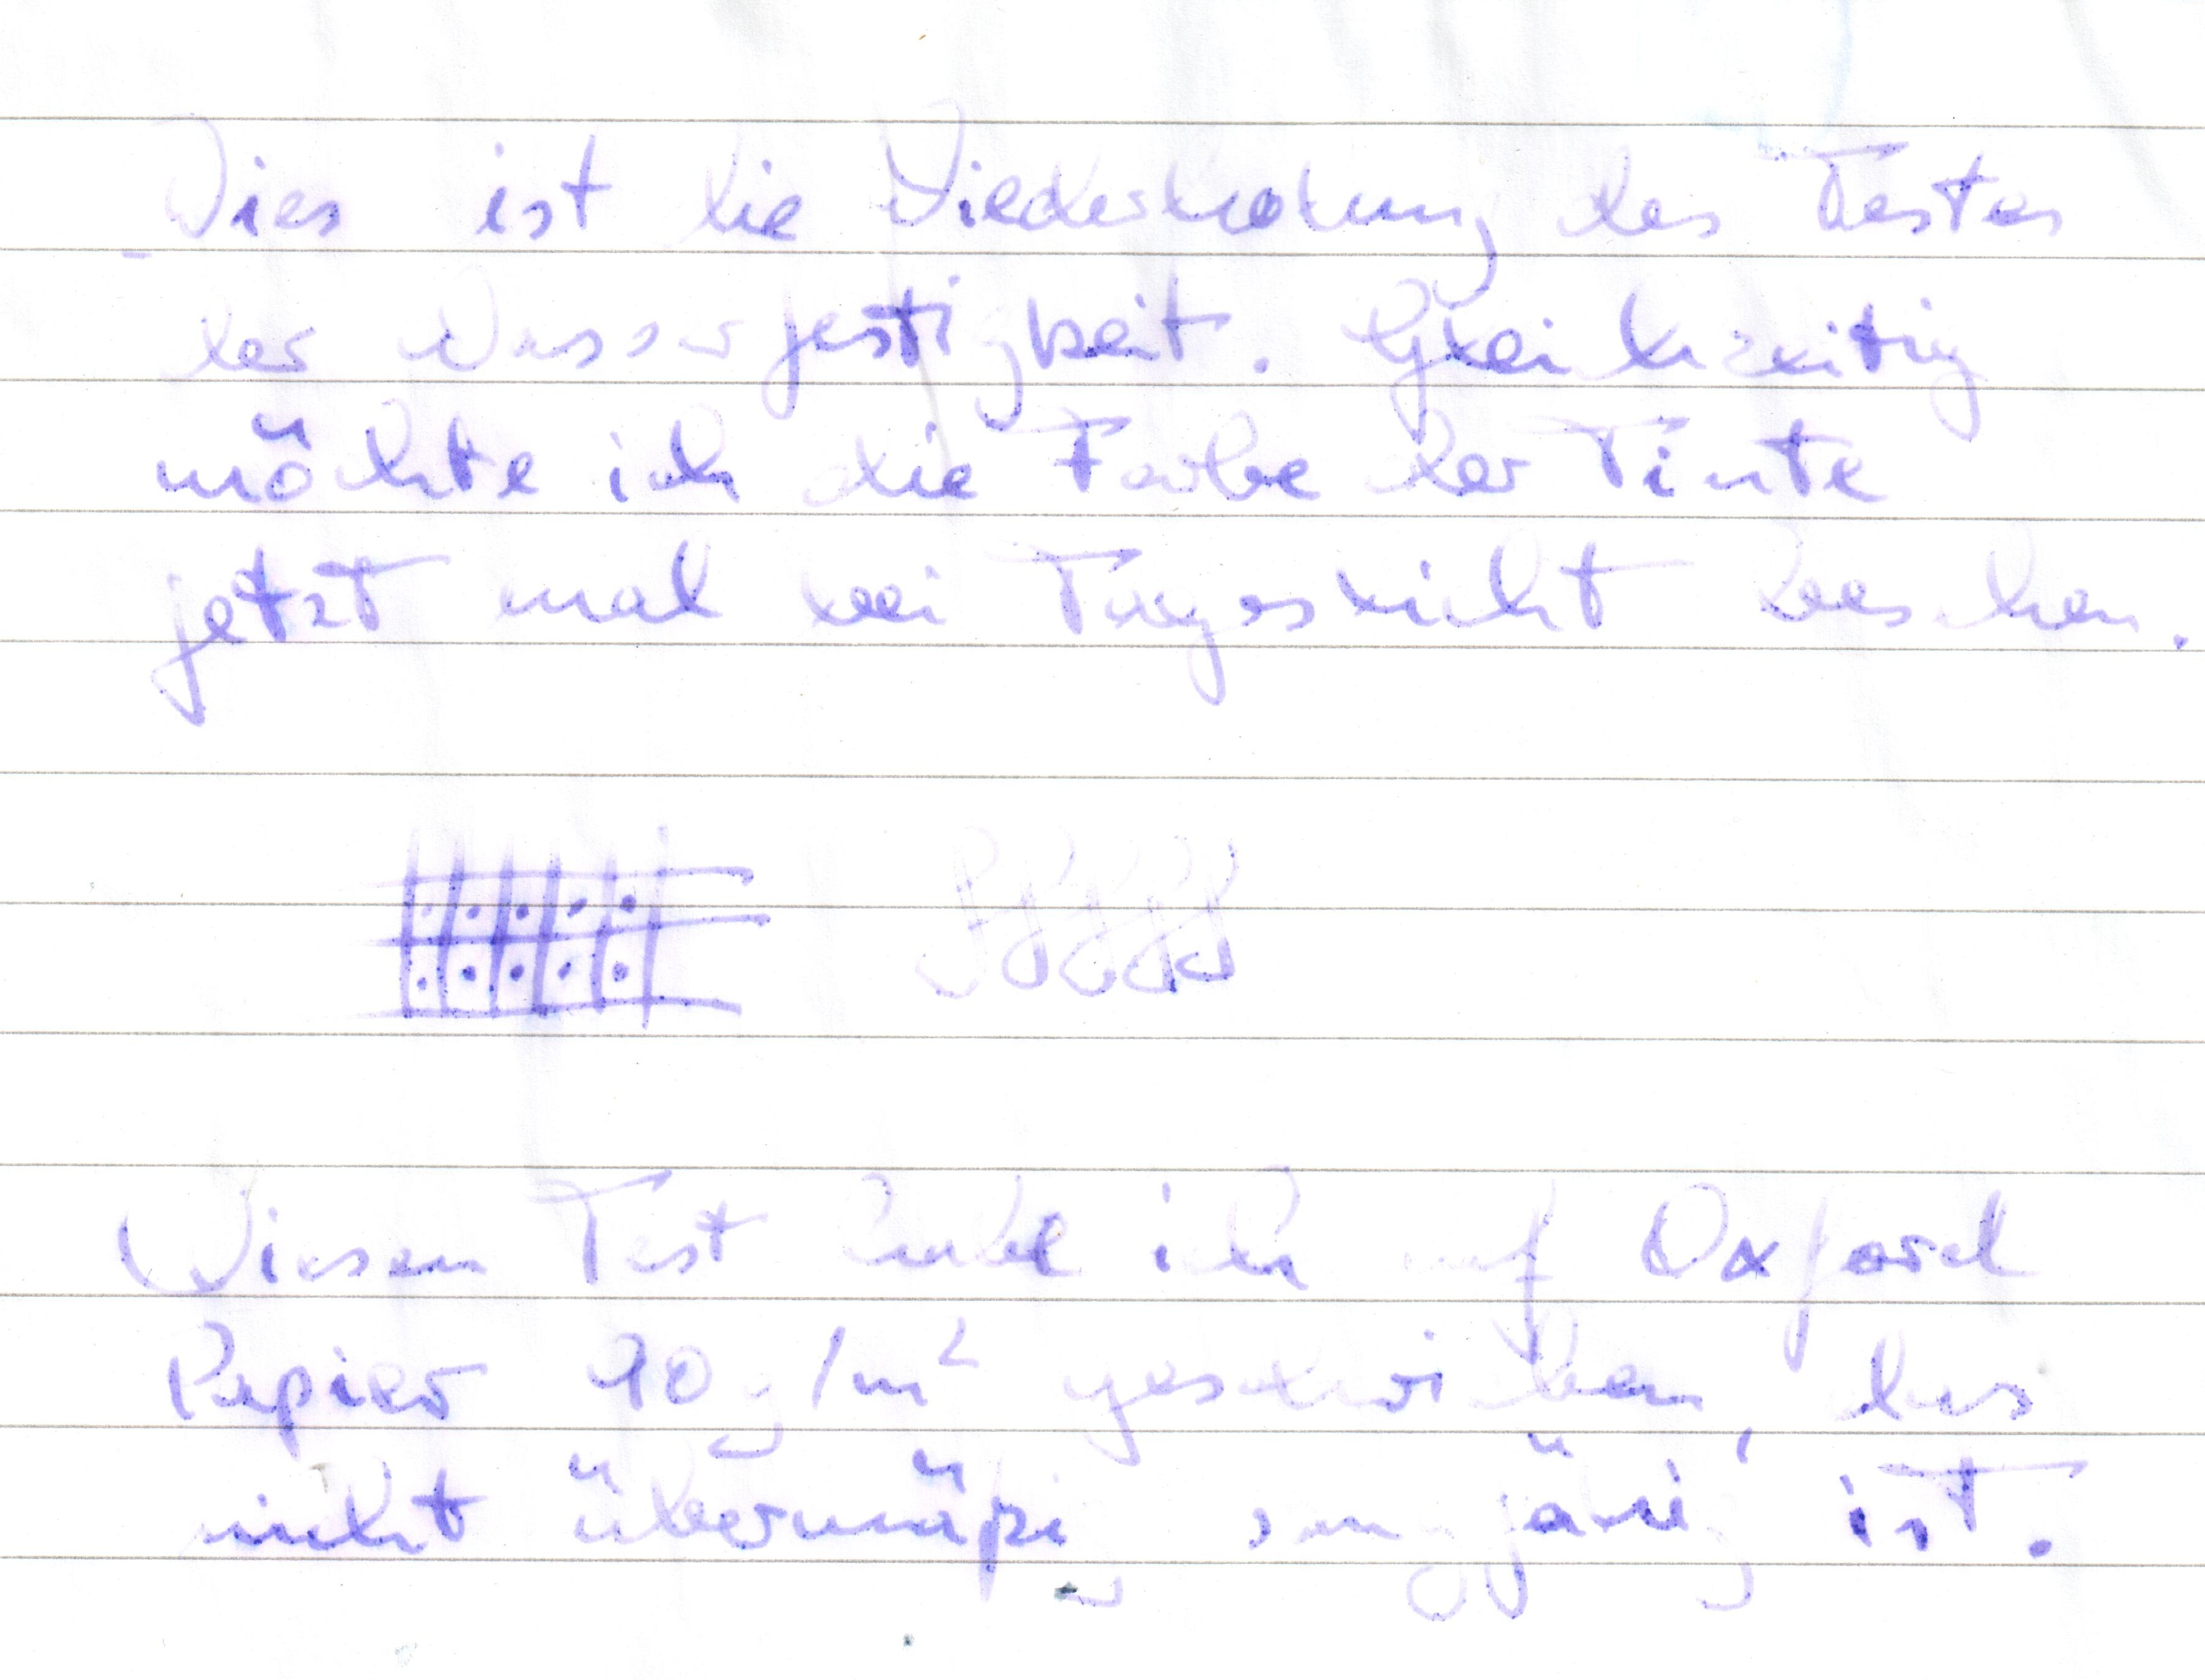 Dies ist die Wiederholung des Testes
der Wasserfestigkeit. Gleichzeitig
möchte ich die Farbe der Tinte
jetzt mal bei Tageslicht besehen.
Diesen Test habe ich auf Oxford
Papier 90 g/m² geschrieben, das
nicht übermäßig saugfähig ist.